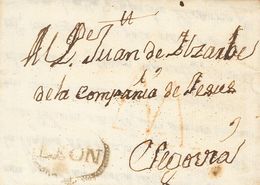 Al Pe Juan de
de la Compañia de Jesus
Segovia
LEON